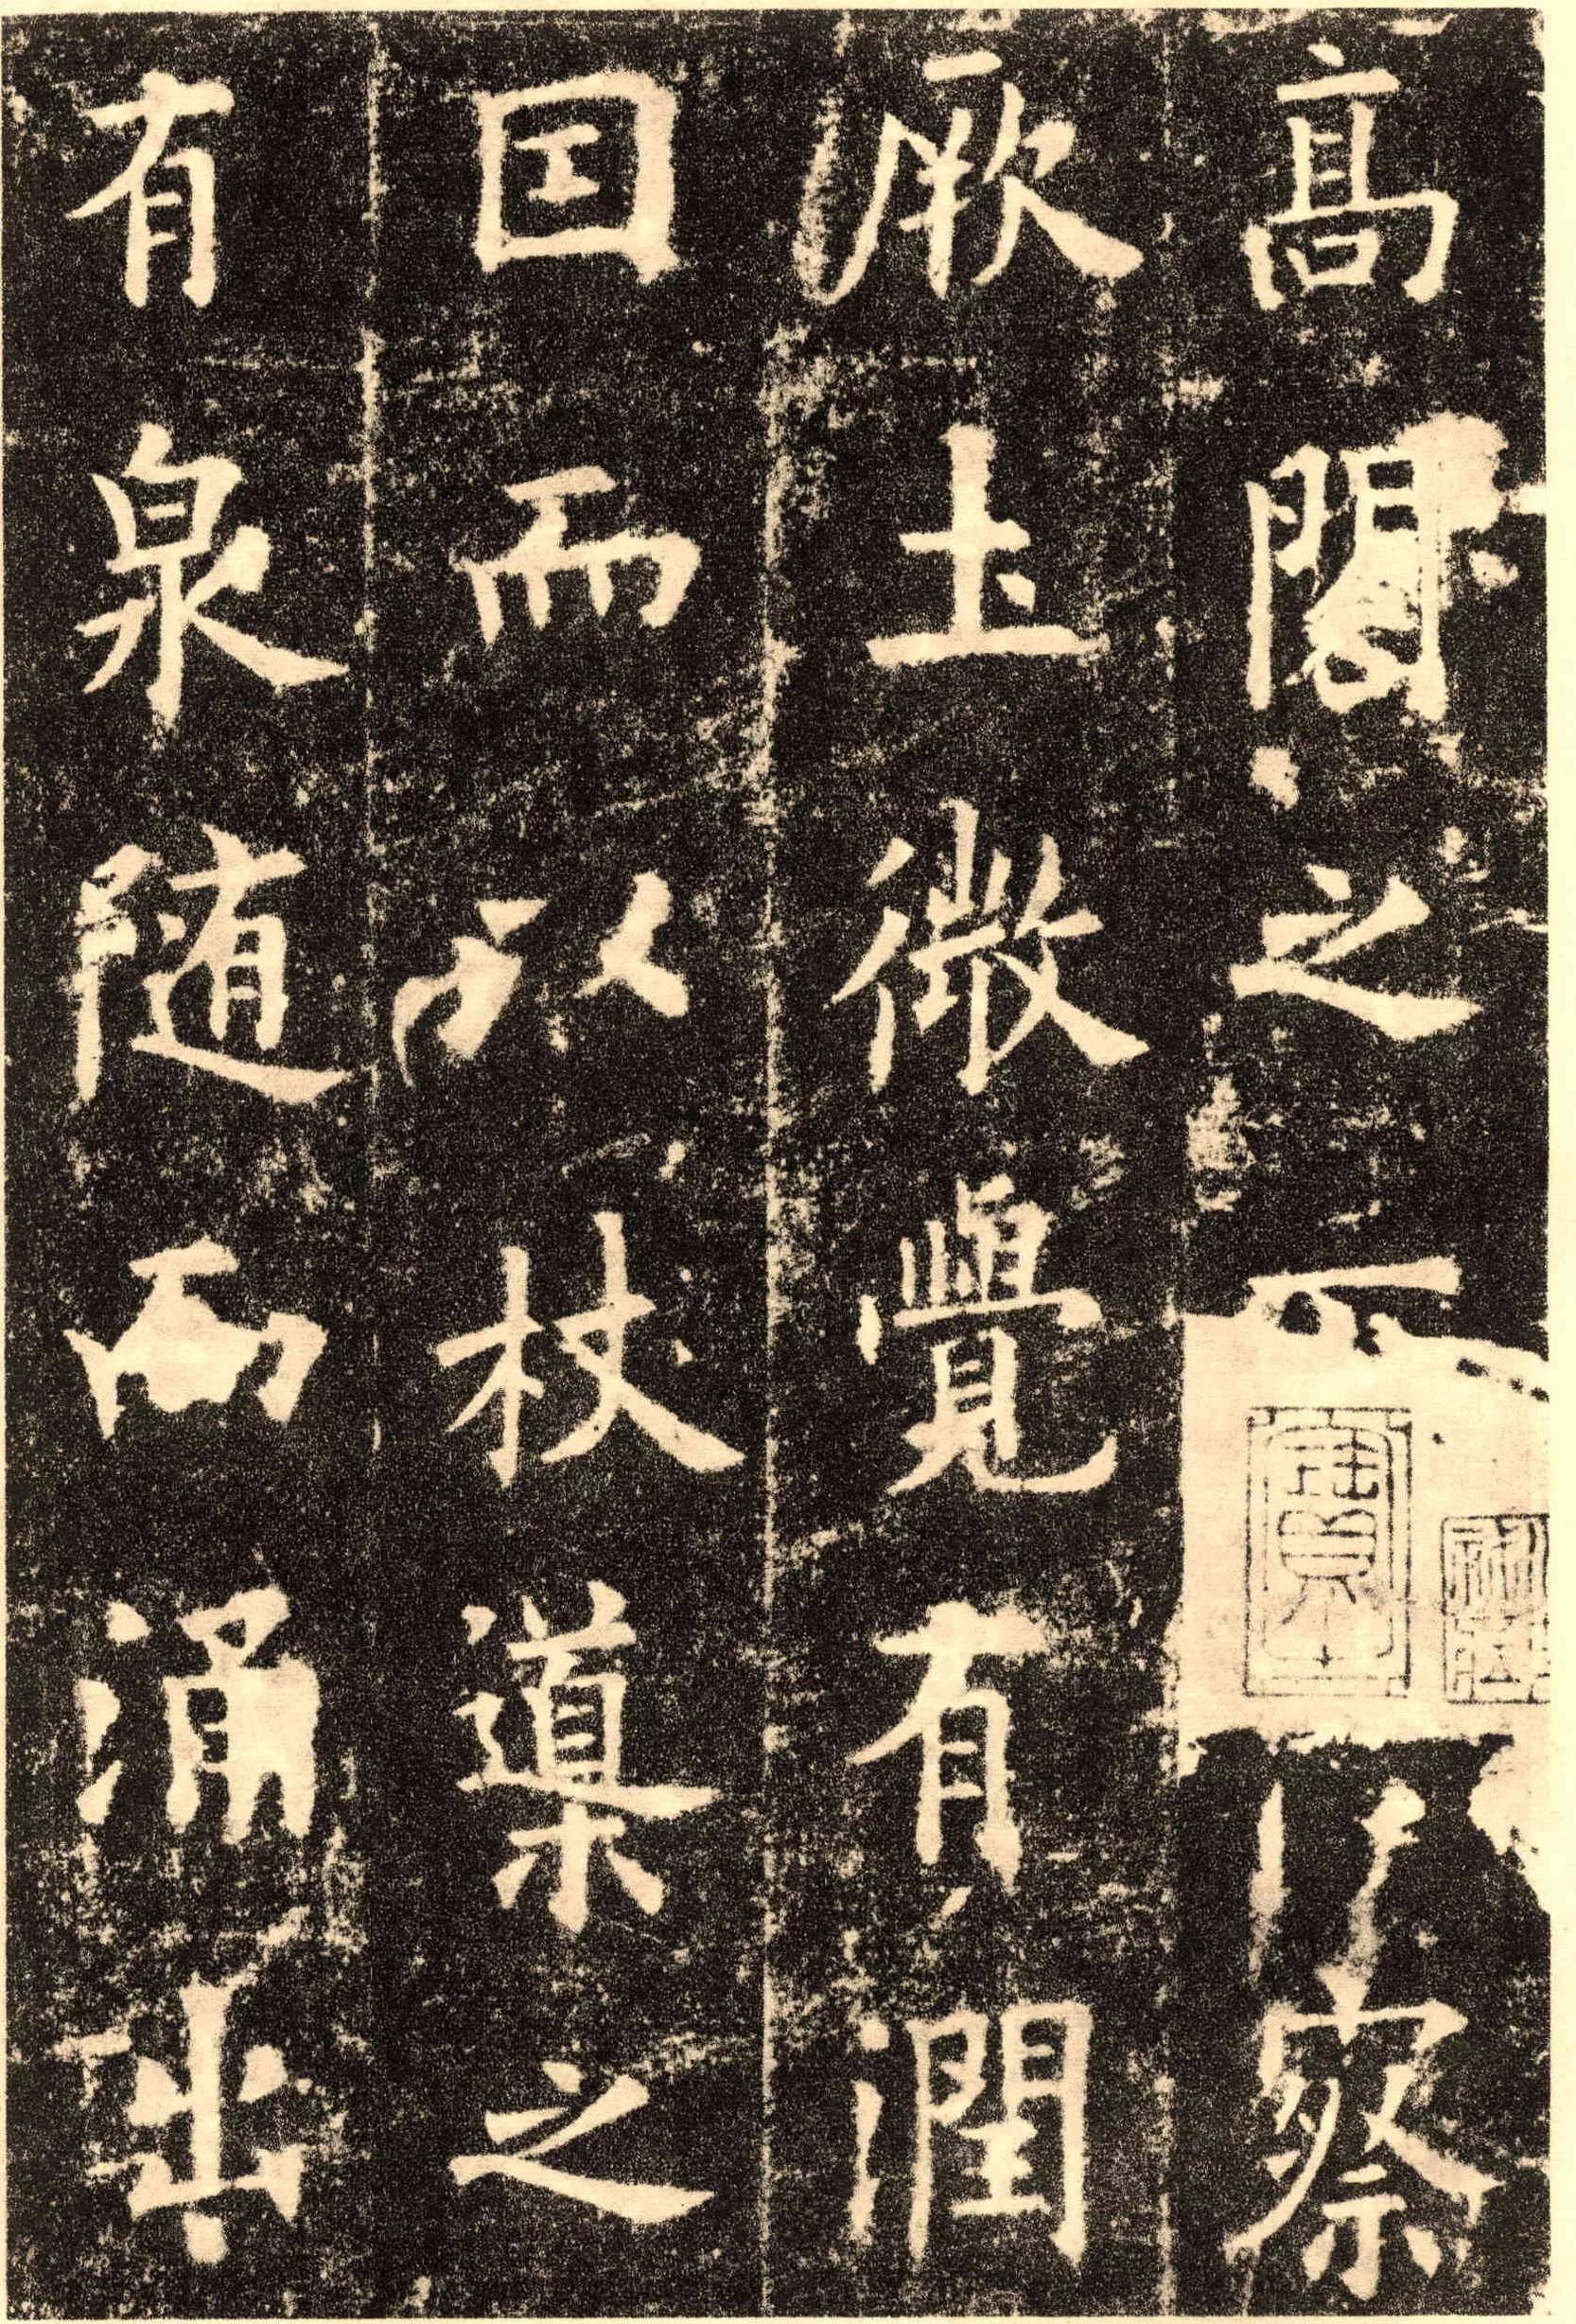 高閣之下俯察
厥土微覺有潤
因而以杖導之
有泉随而涌出